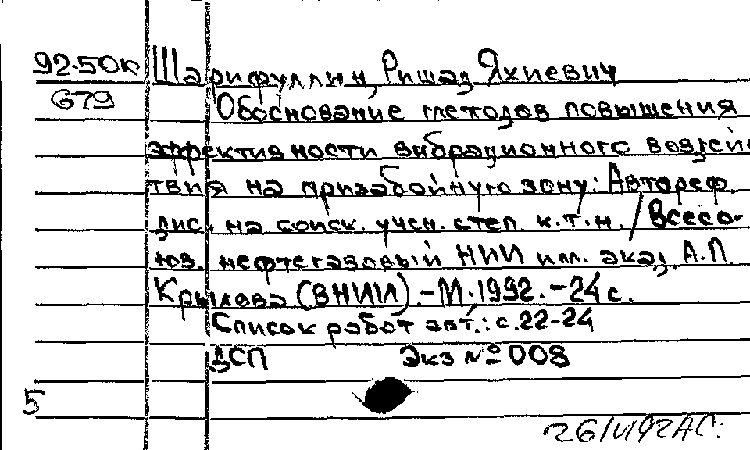 92-50к Шарифуллин, Ришад Яхиевич
679 Обоснование методов повышения
эффективности вибрационного воздейс
твия на призабойную зону: Автореф.
дис. на соиск. учен. степ. к.т.н. / Всесо-
юз. нефтегазовый НИИ им. акад. А.П.
Крылова (ВНИИ). - М. 1992. - 24 с.
Список работ авт.: с. 22-24
ДСП Экз № 008
5